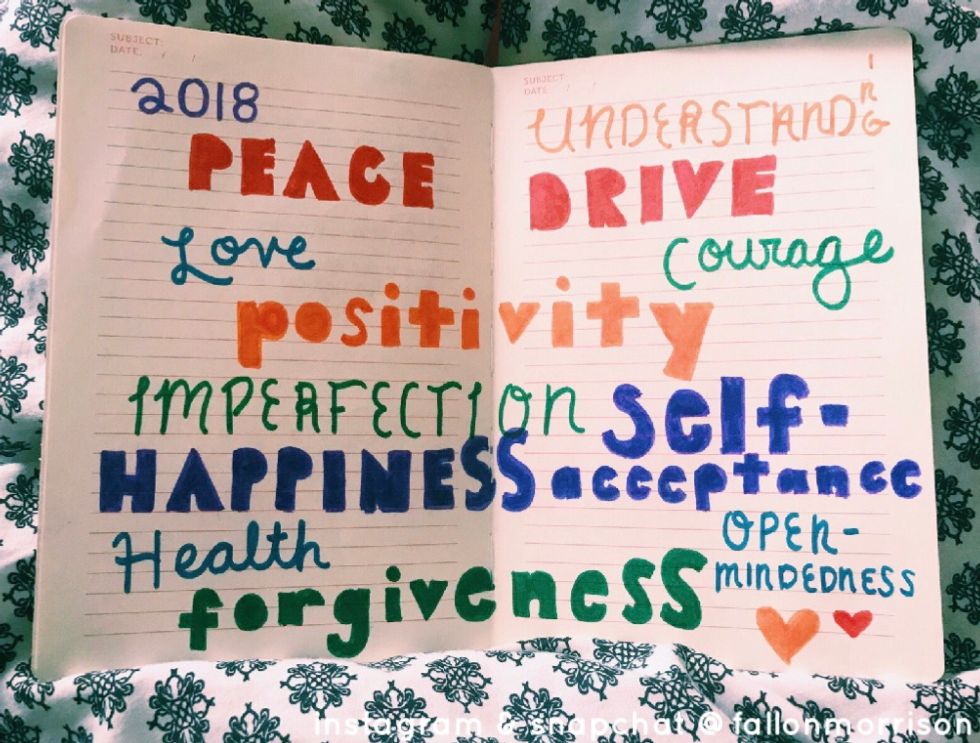 SUBJECT:
DATE: / /
2018
PEACE
Love
SUBJECT:
DATE: / /
UNDERSTANDING
DRIVE
Courage
positivity
IMPERFECTION
HAPPINESS
self-
acceptance
Health
forgiveness
OPEN-
MINDEDNESS
instagram & snapchat @ fallonmorrison